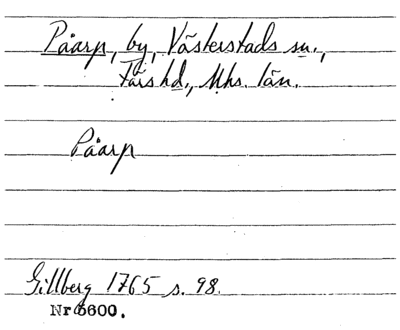 Påarp, by, Västerstads sn.,
Färs hd., Mhs. län.
Påarp
Gillberg 1765 s. 98.
Nr 6600.